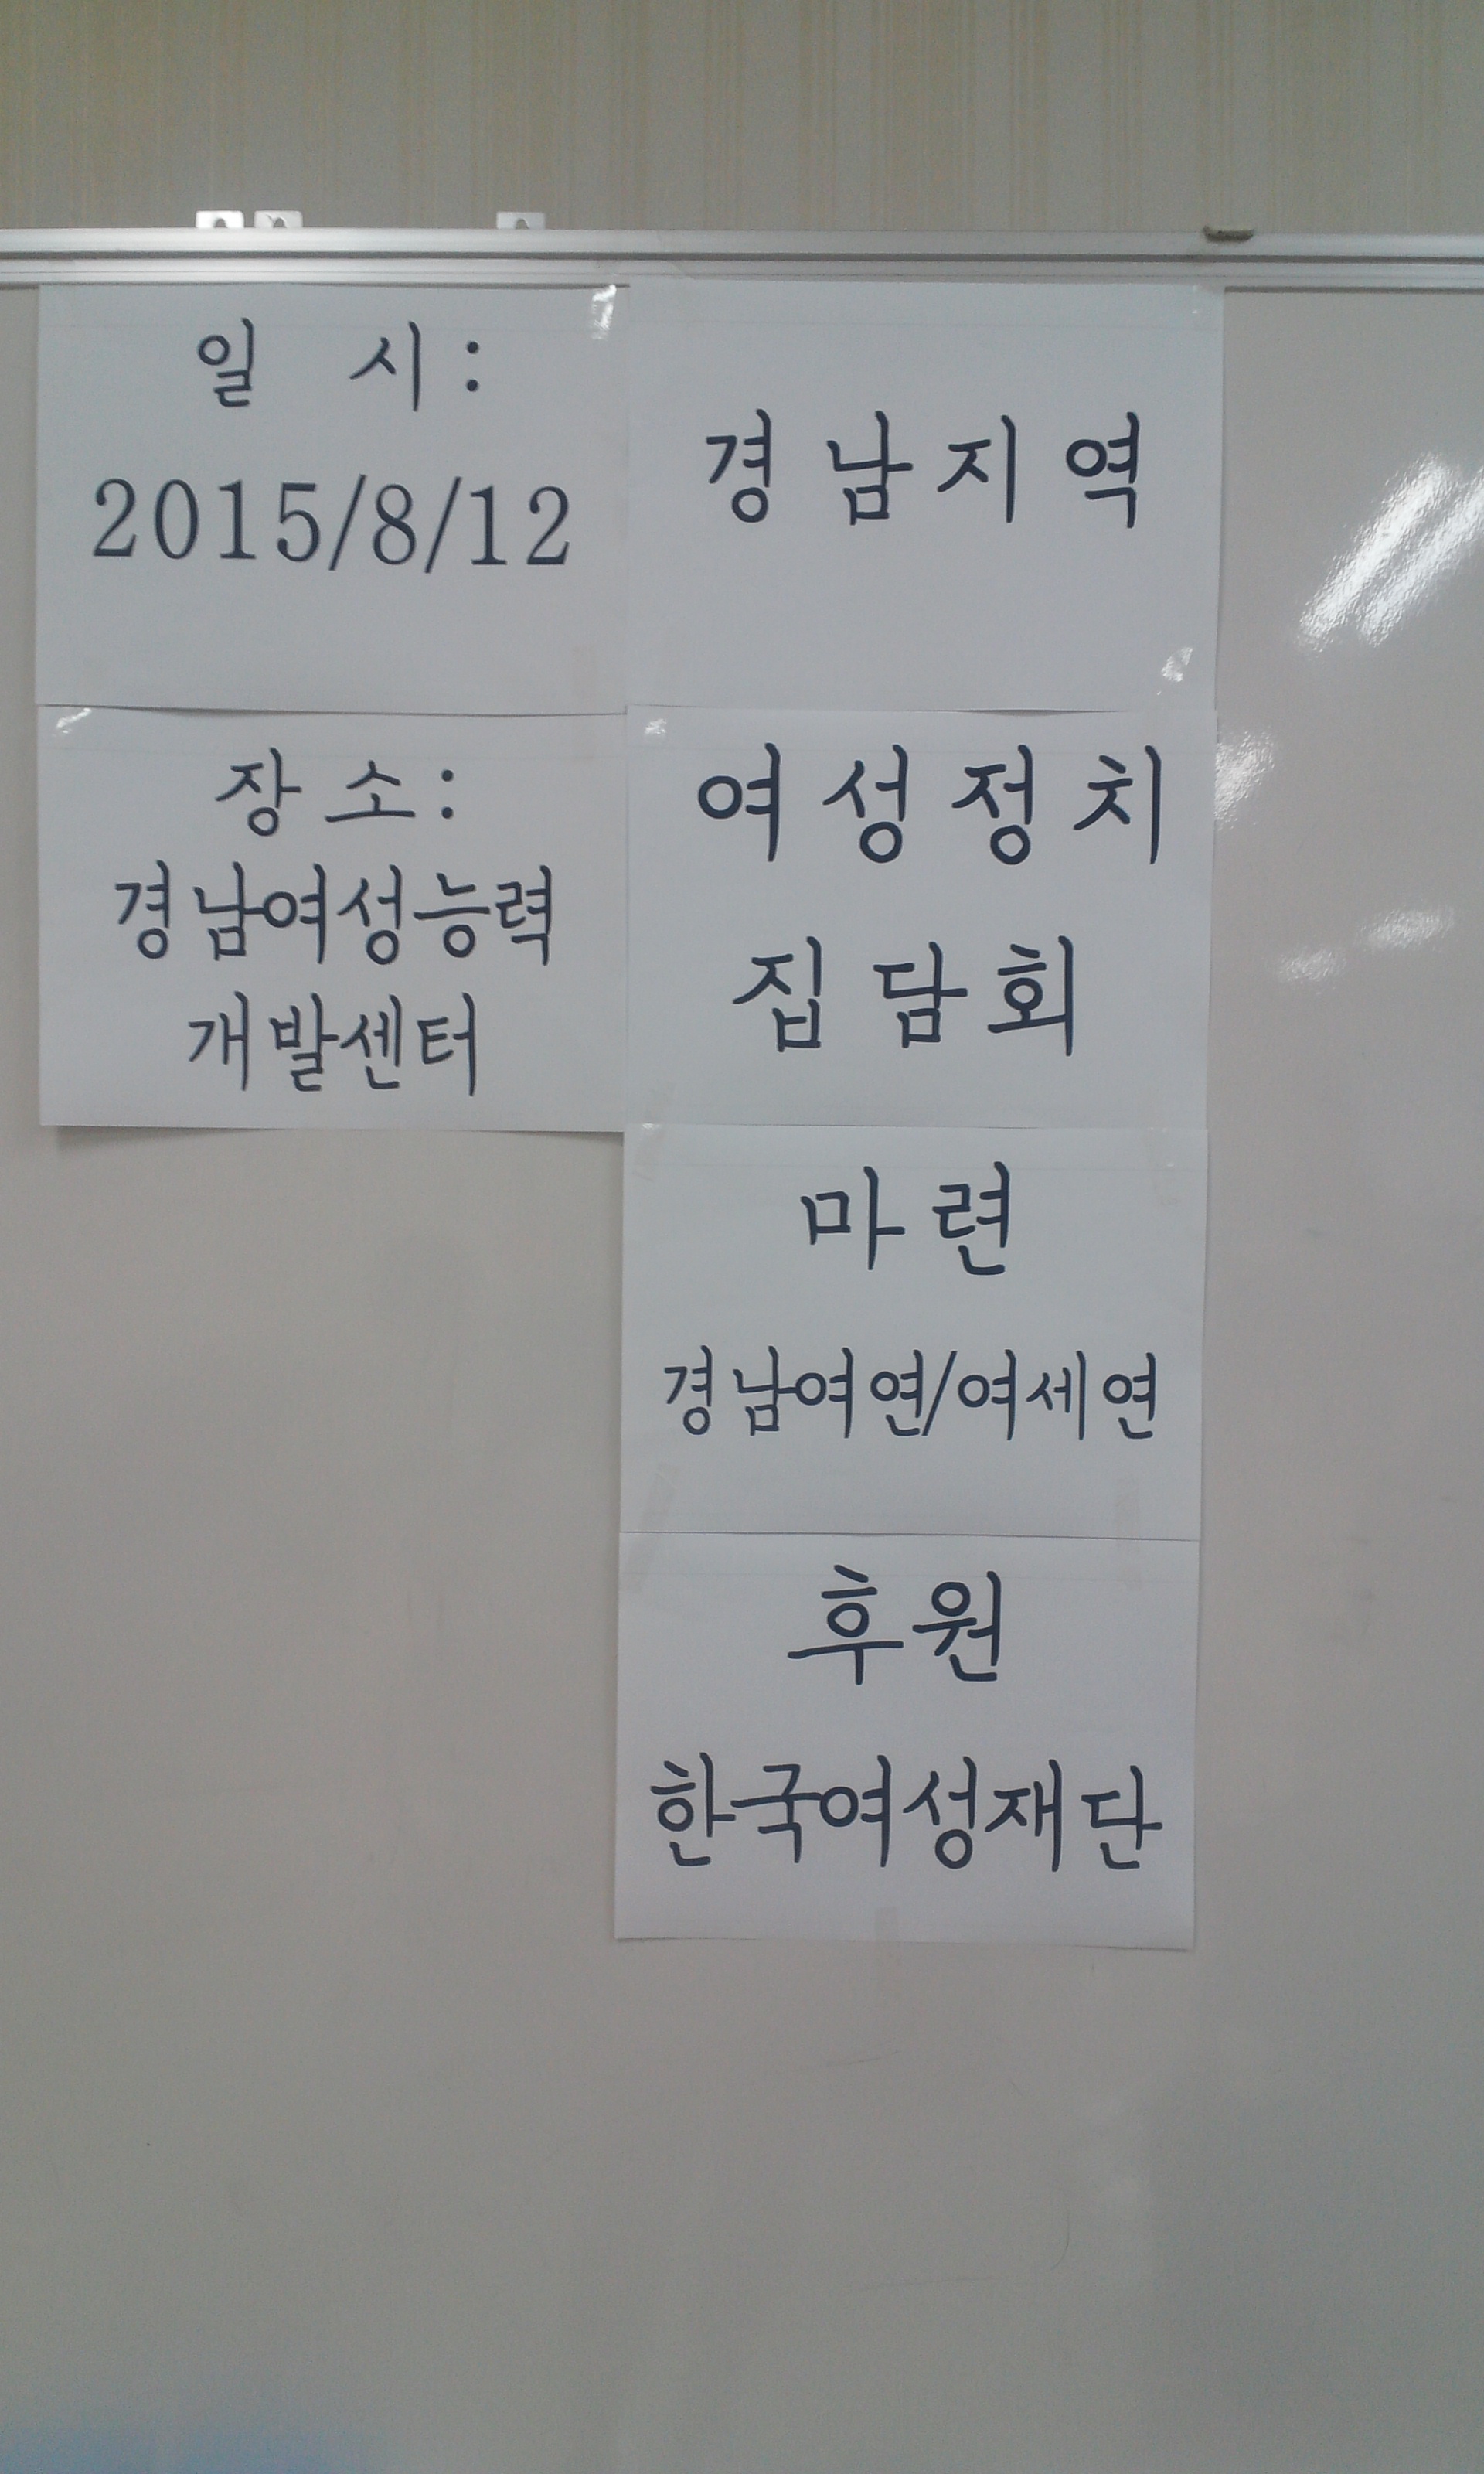 일 시 :
2015/8/12
장 소 :
경남여성능력
개발센터
경남지역
여성정치
집담회
마련
경남여연/여세연
후원
한국여성재단